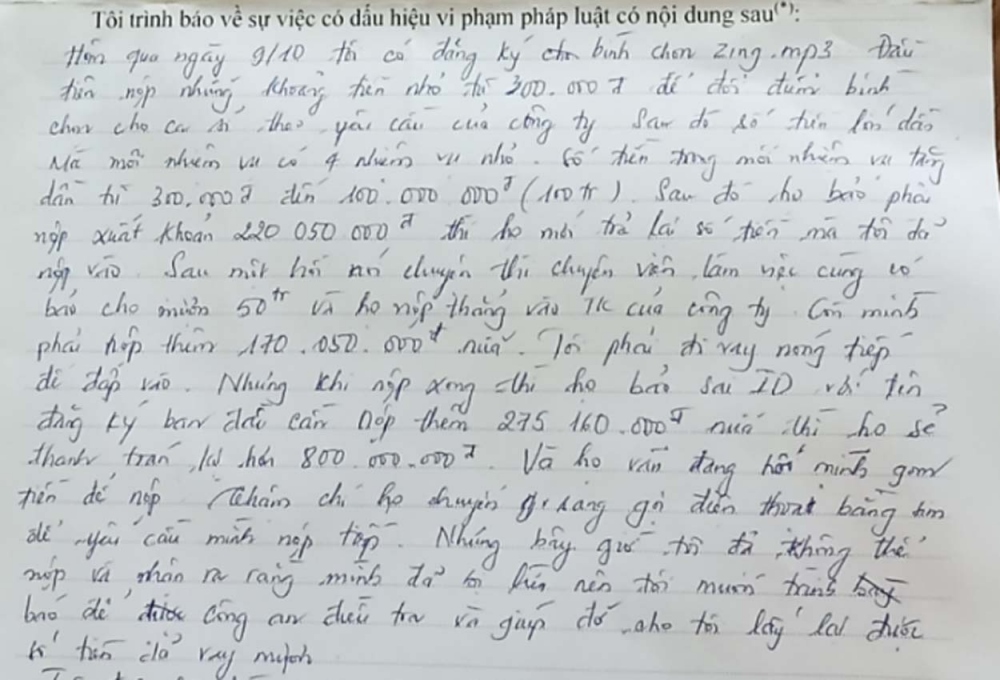 Tôi trình báo về sự việc có dấu hiệu vi phạm pháp luật có nội dung sau(*):
Hôm qua ngày 9/10 tôi có đăng ký bình chọn Zing.mp3 Đầu
tiên nộp những khoảng tiền nhỏ từ 300.000đ để đổi điểm bình
chọn cho ca sĩ theo yêu cầu của công ty Sau đó số tiền lớn dần
Mà mỗi nhiệm vụ có 4 nhiệm vụ nhỏ. Số tiền trong mỗi nhiệm vụ tăng
dần từ 300.000đ đến 100.000.000đ (100tr). Sau đó họ bảo phải
nộp xuất khoản 220 050 000đ thì họ mới trả lại số tiền mà tôi đã
nộp vào. Sau một hồi nói chuyện thì chuyên viên làm việc cùng có
báo cho mượn 50tr và họ nộp thẳng vào TK của công ty. Còn mình
phải nộp thêm 170.050.000đ nữa. Tôi phải đi vay nóng tiếp
để đắp vào. Nhưng khi nộp xong thì họ bảo sai ID với tên
đăng ký ban đầu cần nộp thêm 275 160.000đ nữa thì họ sẽ
thanh toán lại hơn 800.000.000đ. Và họ vẫn đang hối mình gom
tiền để nộp Thậm chí họ chuyển sang gọi điện thoại bằng sim
để yêu cầu mình nộp tiếp. Nhưng bây giờ tôi đã không thể
nộp và nhận ra rằng mình đã bị lừa nên tôi muốn trình
báo để được công an điều tra và giúp đỡ cho tôi lấy lại được
số tiền đã vay mượn